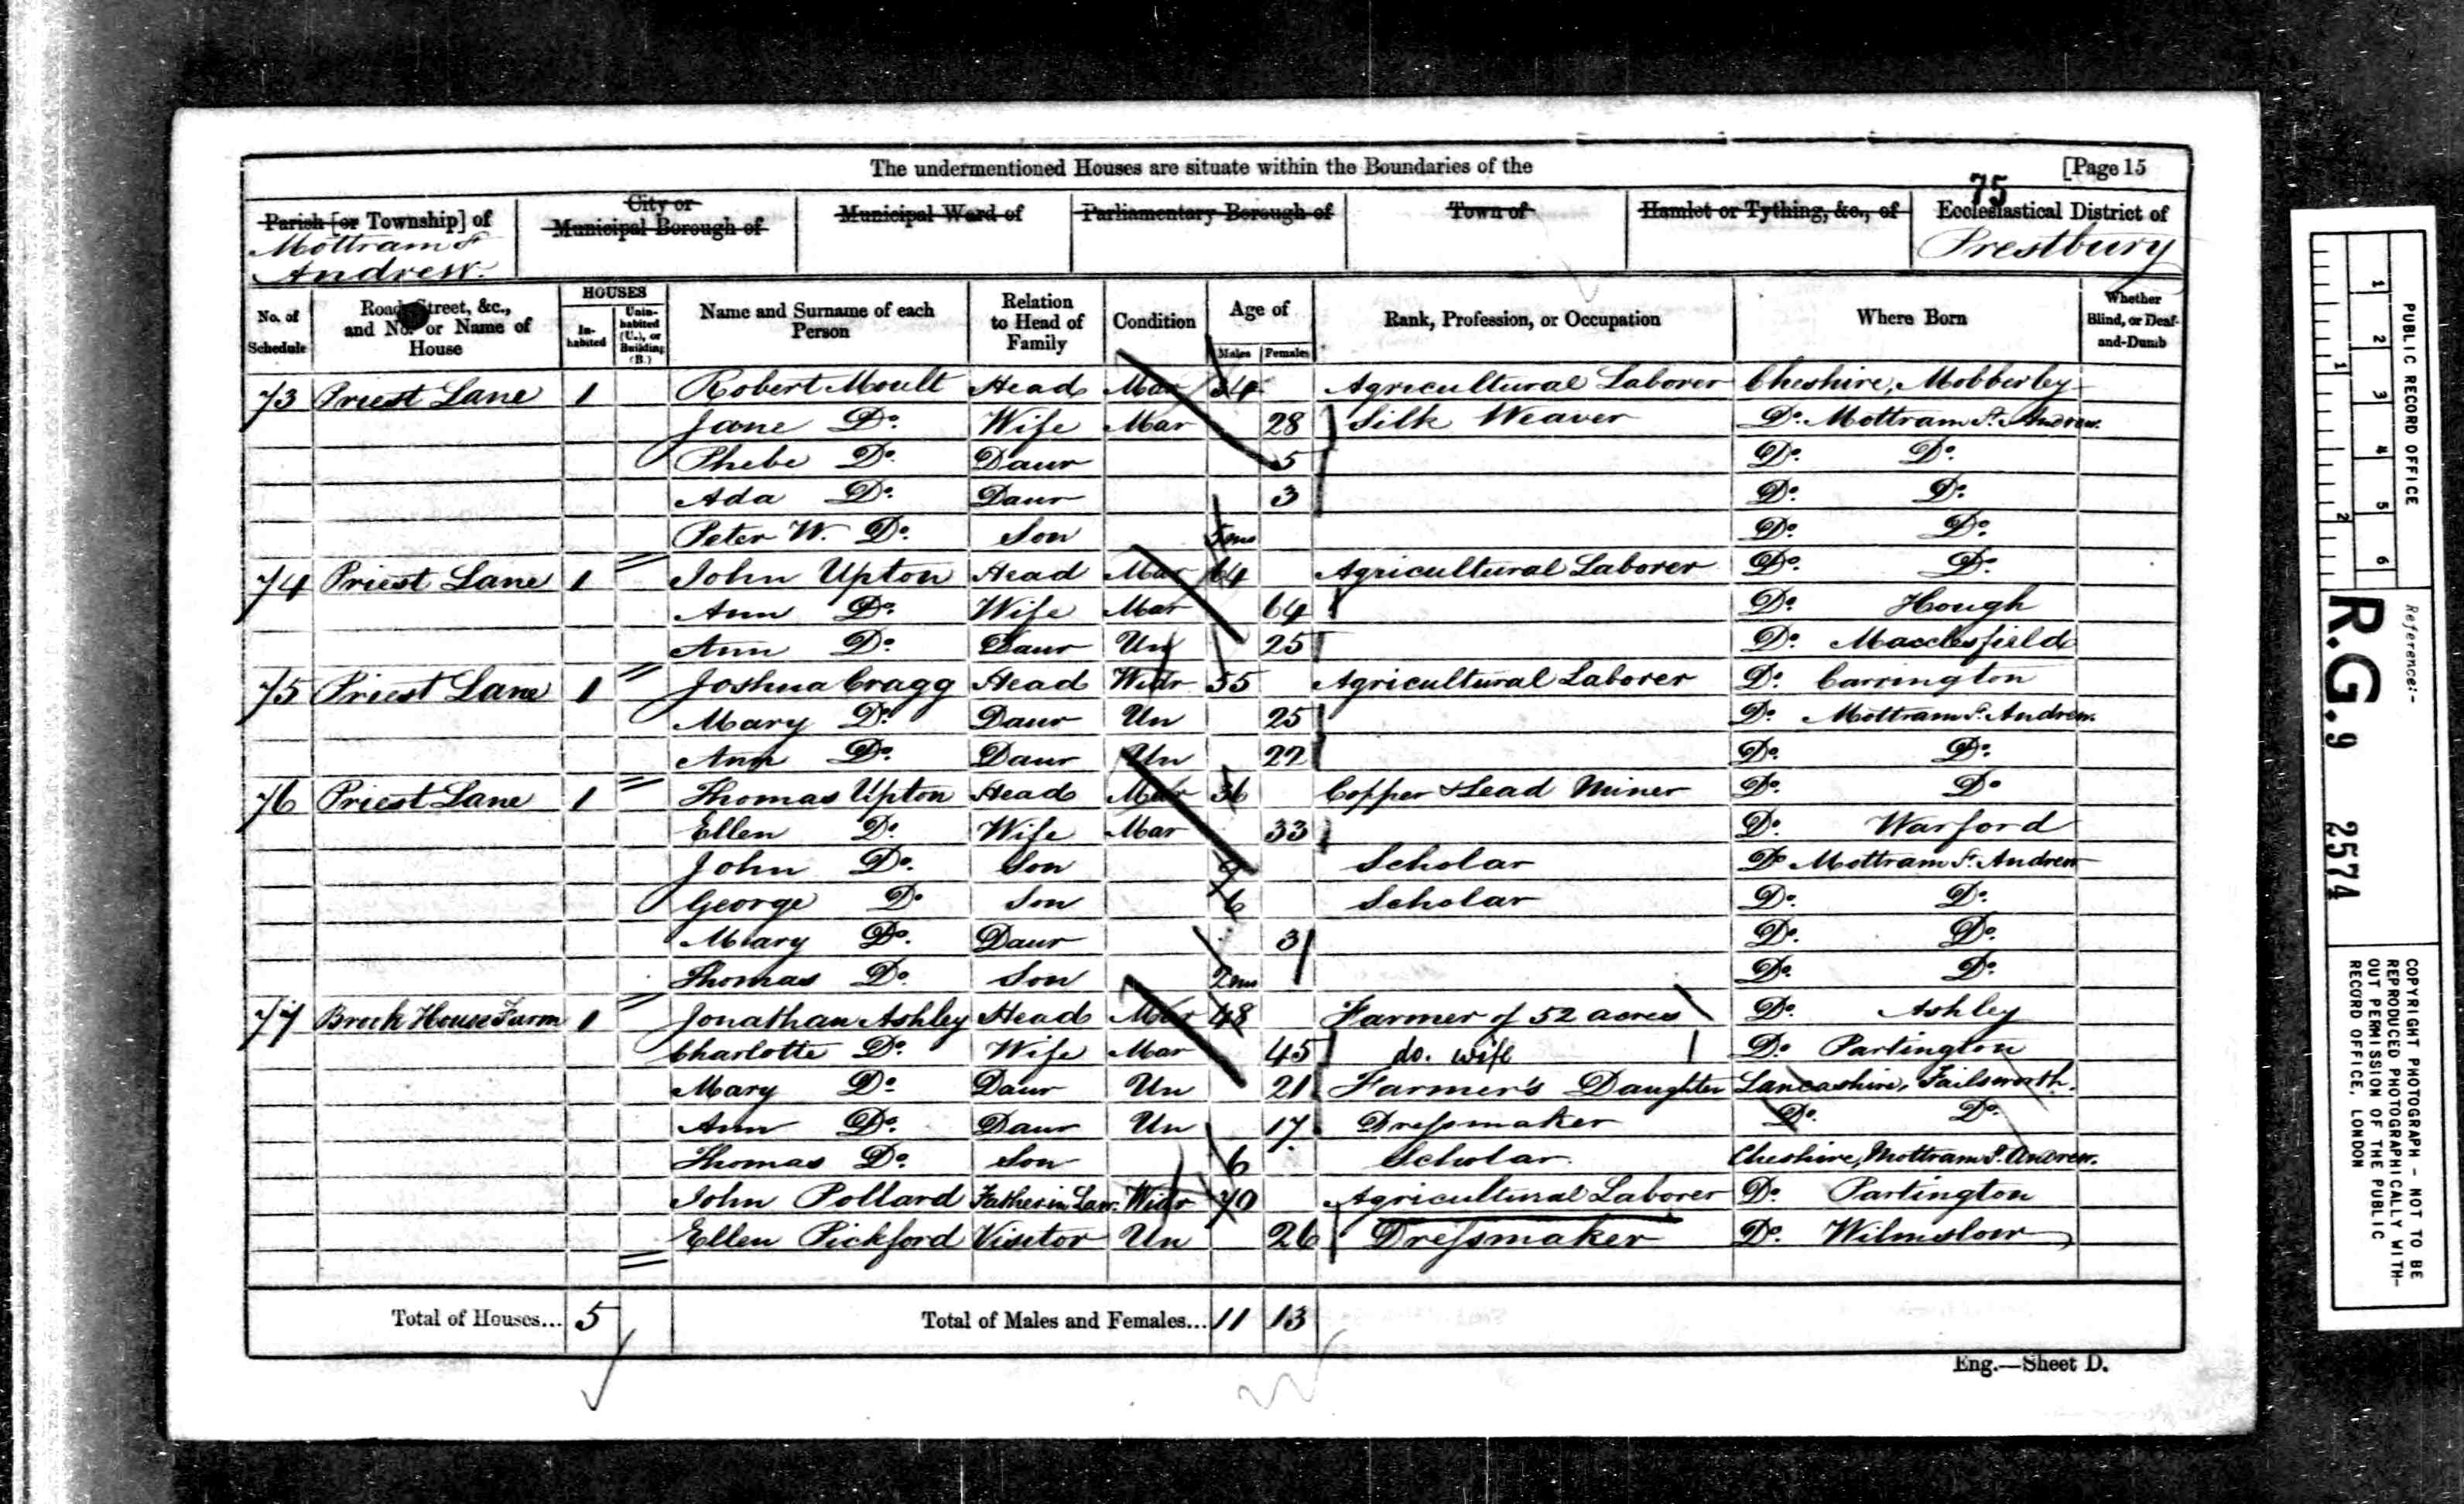 The undermentioned Houses are situate within the Boundaries of the [Page 15
75
Parish [or Township] of
Mottram St
Andrew.
City or
Municipal Borough of
Municipal Ward of
Parliamentary Borough of
Town of
Hamlet or Tything, &c., of
Ecclesiastical District of
Prestbury
No. of
Schedule
Road, Street, &c.,
and No. or Name of
House
HOUSES
In-
habited
Unin-
habited
(U.), or
Building
(B.)
Name and Surname of each
Person
Relation
to Head of
Family
Condition
Age of
Males Females
Rank, Profession, or Occupation
Where Born
Whether
Blind, or Deaf-
and-Dumb
73 Priest Lane 1 Robert Moult Head Mar 34 Agricultural Laborer Cheshire, Mobberley
Jane Do. Wife Mar 28 Silk Weaver Do. Mottram St. Andrew.
Phebe Do. Daur 5 Do. Do.
Ada Do. Daur 3 Do. Do.
Peter W. Do. Son 5 mo Do. Do.
74 Priest Lane 1 John Upton Head Mar 64 Agricultural Laborer Do. Do.
Ann Do. Wife Mar 64 Do. Hough
Ann Do. Daur Un 25 Do. Macclesfield
75 Priest Lane 1 Joshua Cragg Head Widr 55 Agricultural Laborer Do. Carrington
Mary Do. Daur Un 25 Do. Mottram St. Andrew.
Ann Do. Daur Un 22 Do. Do.
76 Priest Lane 1 Thomas Upton Head Mar 36 Copper & Lead Miner Do. Do
Ellen Do. Wife Mar 33 Do. Warford
John Do. Son 9 Scholar Do Mottram St. Andrew
George Do Son 6 Scholar Do. Do.
Mary Do. Daur 3 Do. Do.
Thomas Do. Son 2 mo Do. Do.
77 Brook House Farm 1 Jonathan Ashley Head Mar 48 Farmer of 52 acres Do. Ashley
Charlotte Do. Wife Mar 45 do. wife Do. Partington
Mary Do. Daur Un 21 Farmer's Daughter Lancashire, Failsworth.
Ann Do. Daur Un 17 Dressmaker Do. Do.
Thomas Do. Son 6 Scholar. Cheshire, Mottram St. Andrew.
John Pollard Father in Law. Widr 70 Agricultural Laborer Do. Partington
Ellen Pickford Visitor Un 26 Dressmaker Do. Wilmslow
Total of Houses... 5 Total of Males and Females... 11 13
Eng.—Sheet D.
1 2 3 4 5 6
1 2
PUBLIC RECORD OFFICE
Reference:-
R.G. 9 2574
COPYRIGHT PHOTOGRAPH - NOT TO BE
REPRODUCED PHOTOGRAPHICALLY WITH-
OUT PERMISSION OF THE PUBLIC
RECORD OFFICE, LONDON